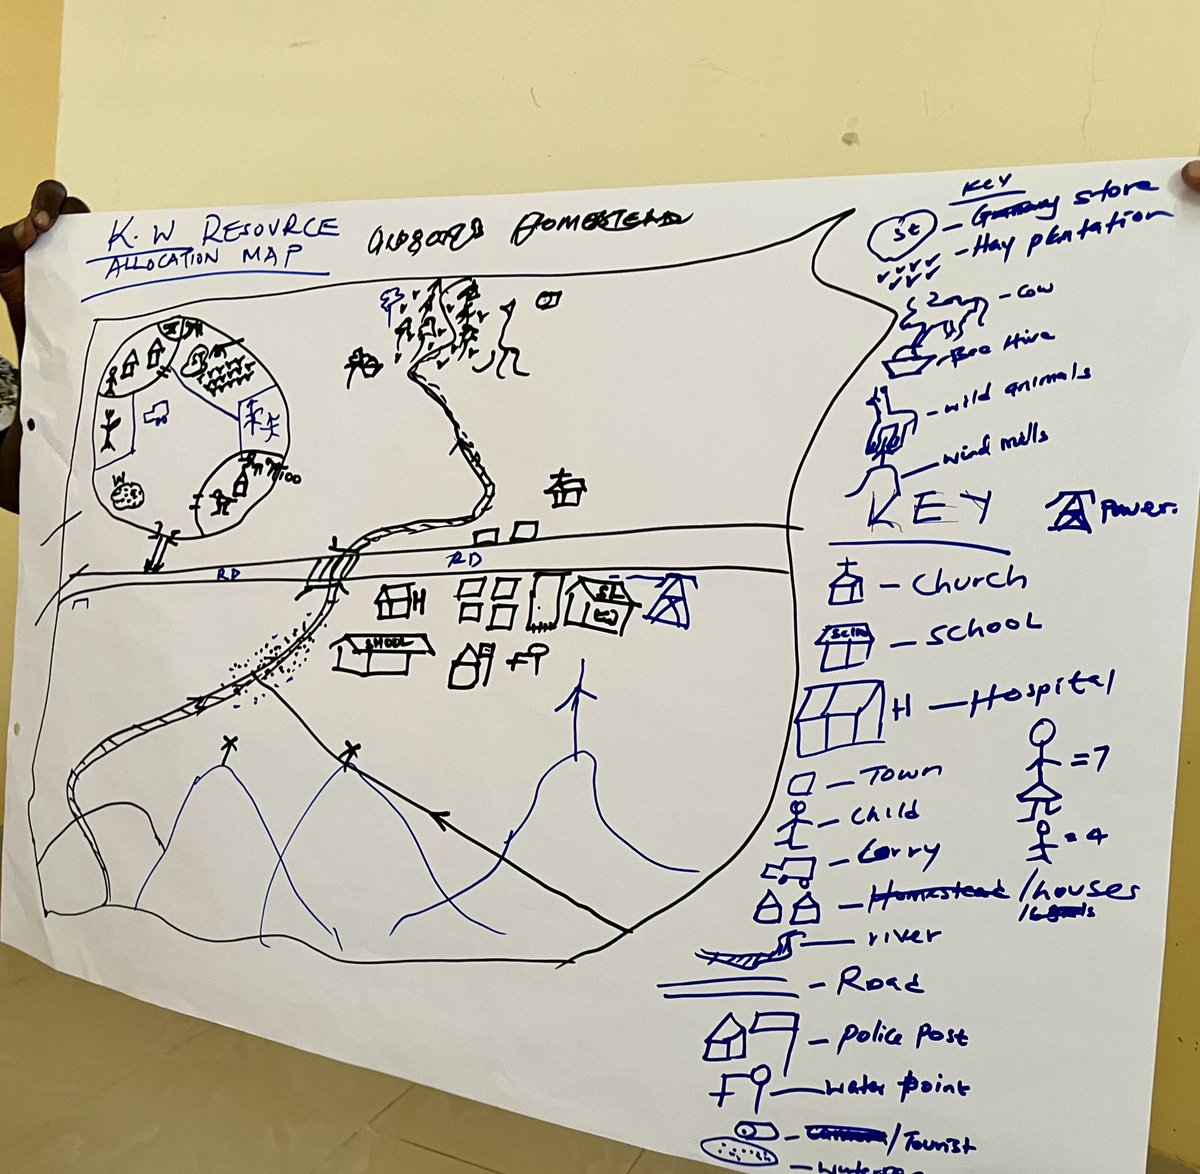 K.W RESOURCE
ALLOCATION MAP
HOMESTEAD
W
100
RD
RD
H
SHOOL
St
KEY
St - store
- Hay plntation
- Cow
- Bee Hive
- wild animals
wind mills
KEY
Power.
- Church
SCHL - SCHOOL
H - Hospital
- Town
= 7
- Child
= 4
- Lorry
- Homestead /houses
- river
- Road
- Police Post
- water point
- /Tourist